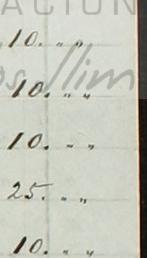 ACION
10. " "
10. " "
10. " "
25. " "
10. " "